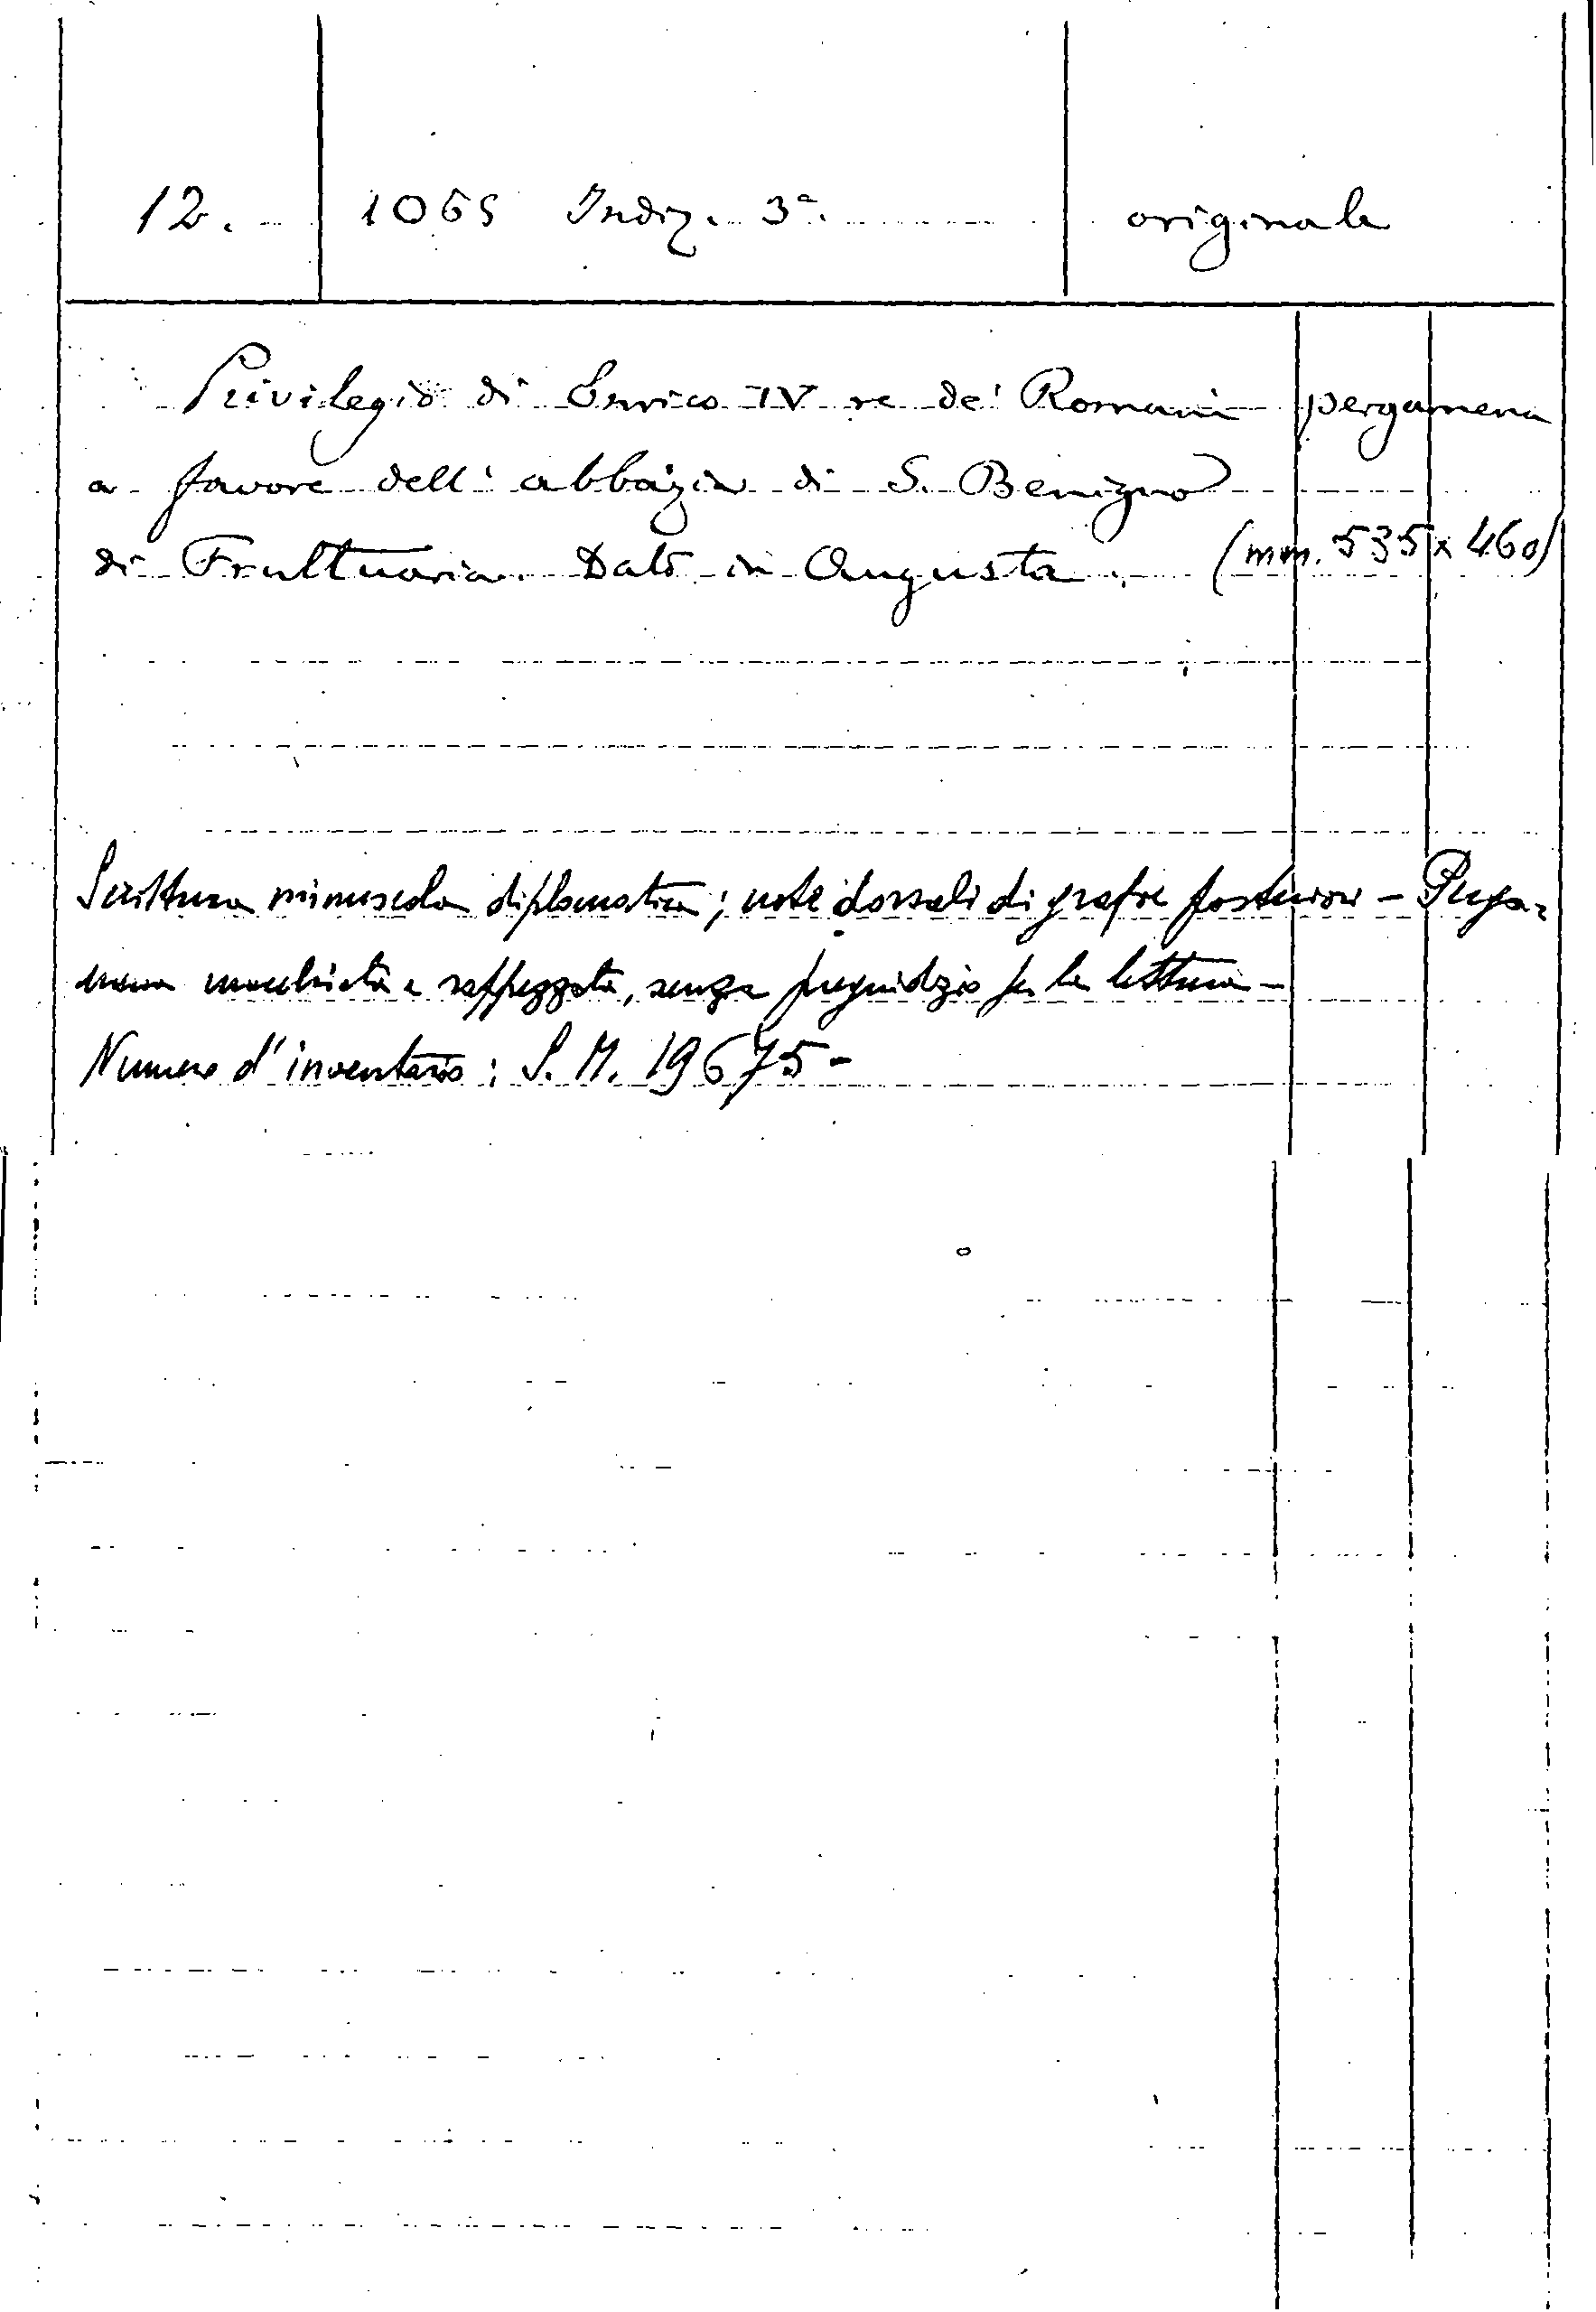 12. 1065 Indiz. 3ª. originale
Privilegio di Enrico IV re de' Romani pergamena
a favore dell'abbazia di S. Benigno
di Fruttuaria. Dato in Augusta. (mm. 535 x 460)
Scrittura minuscola diplomatica; note dorsali di grafie posteriori - Perga-
mena macchiata e rappezzata, senza pregiudizio per la lettura -
Numero d'inventario: S. M. 19675 -